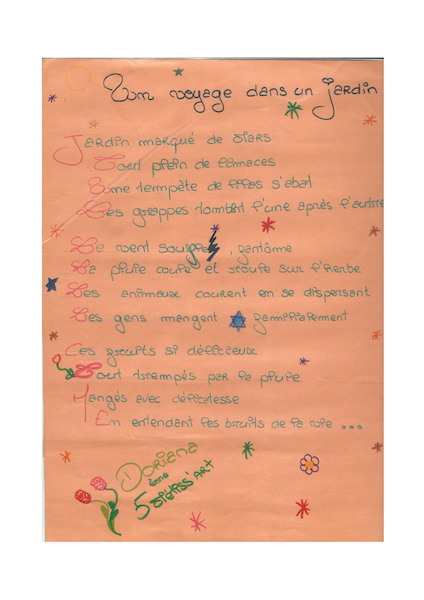 Un voyage dans un jardin
Jardin marqué de
Tout plein de limaces
Une tempête de s'abat
Les grappes tombent l'une après l'autre
Le vent souffle, fantôme
La pluie coupe et sur l'herbe
Les animaux courent en se dispersant
Les gens mangent familialement
Ces biscuits si délicieux
Tout trempés par la pluie
Mangés avec délicatesse
En entendant les bruits de la vie ...
Doriana
5ème